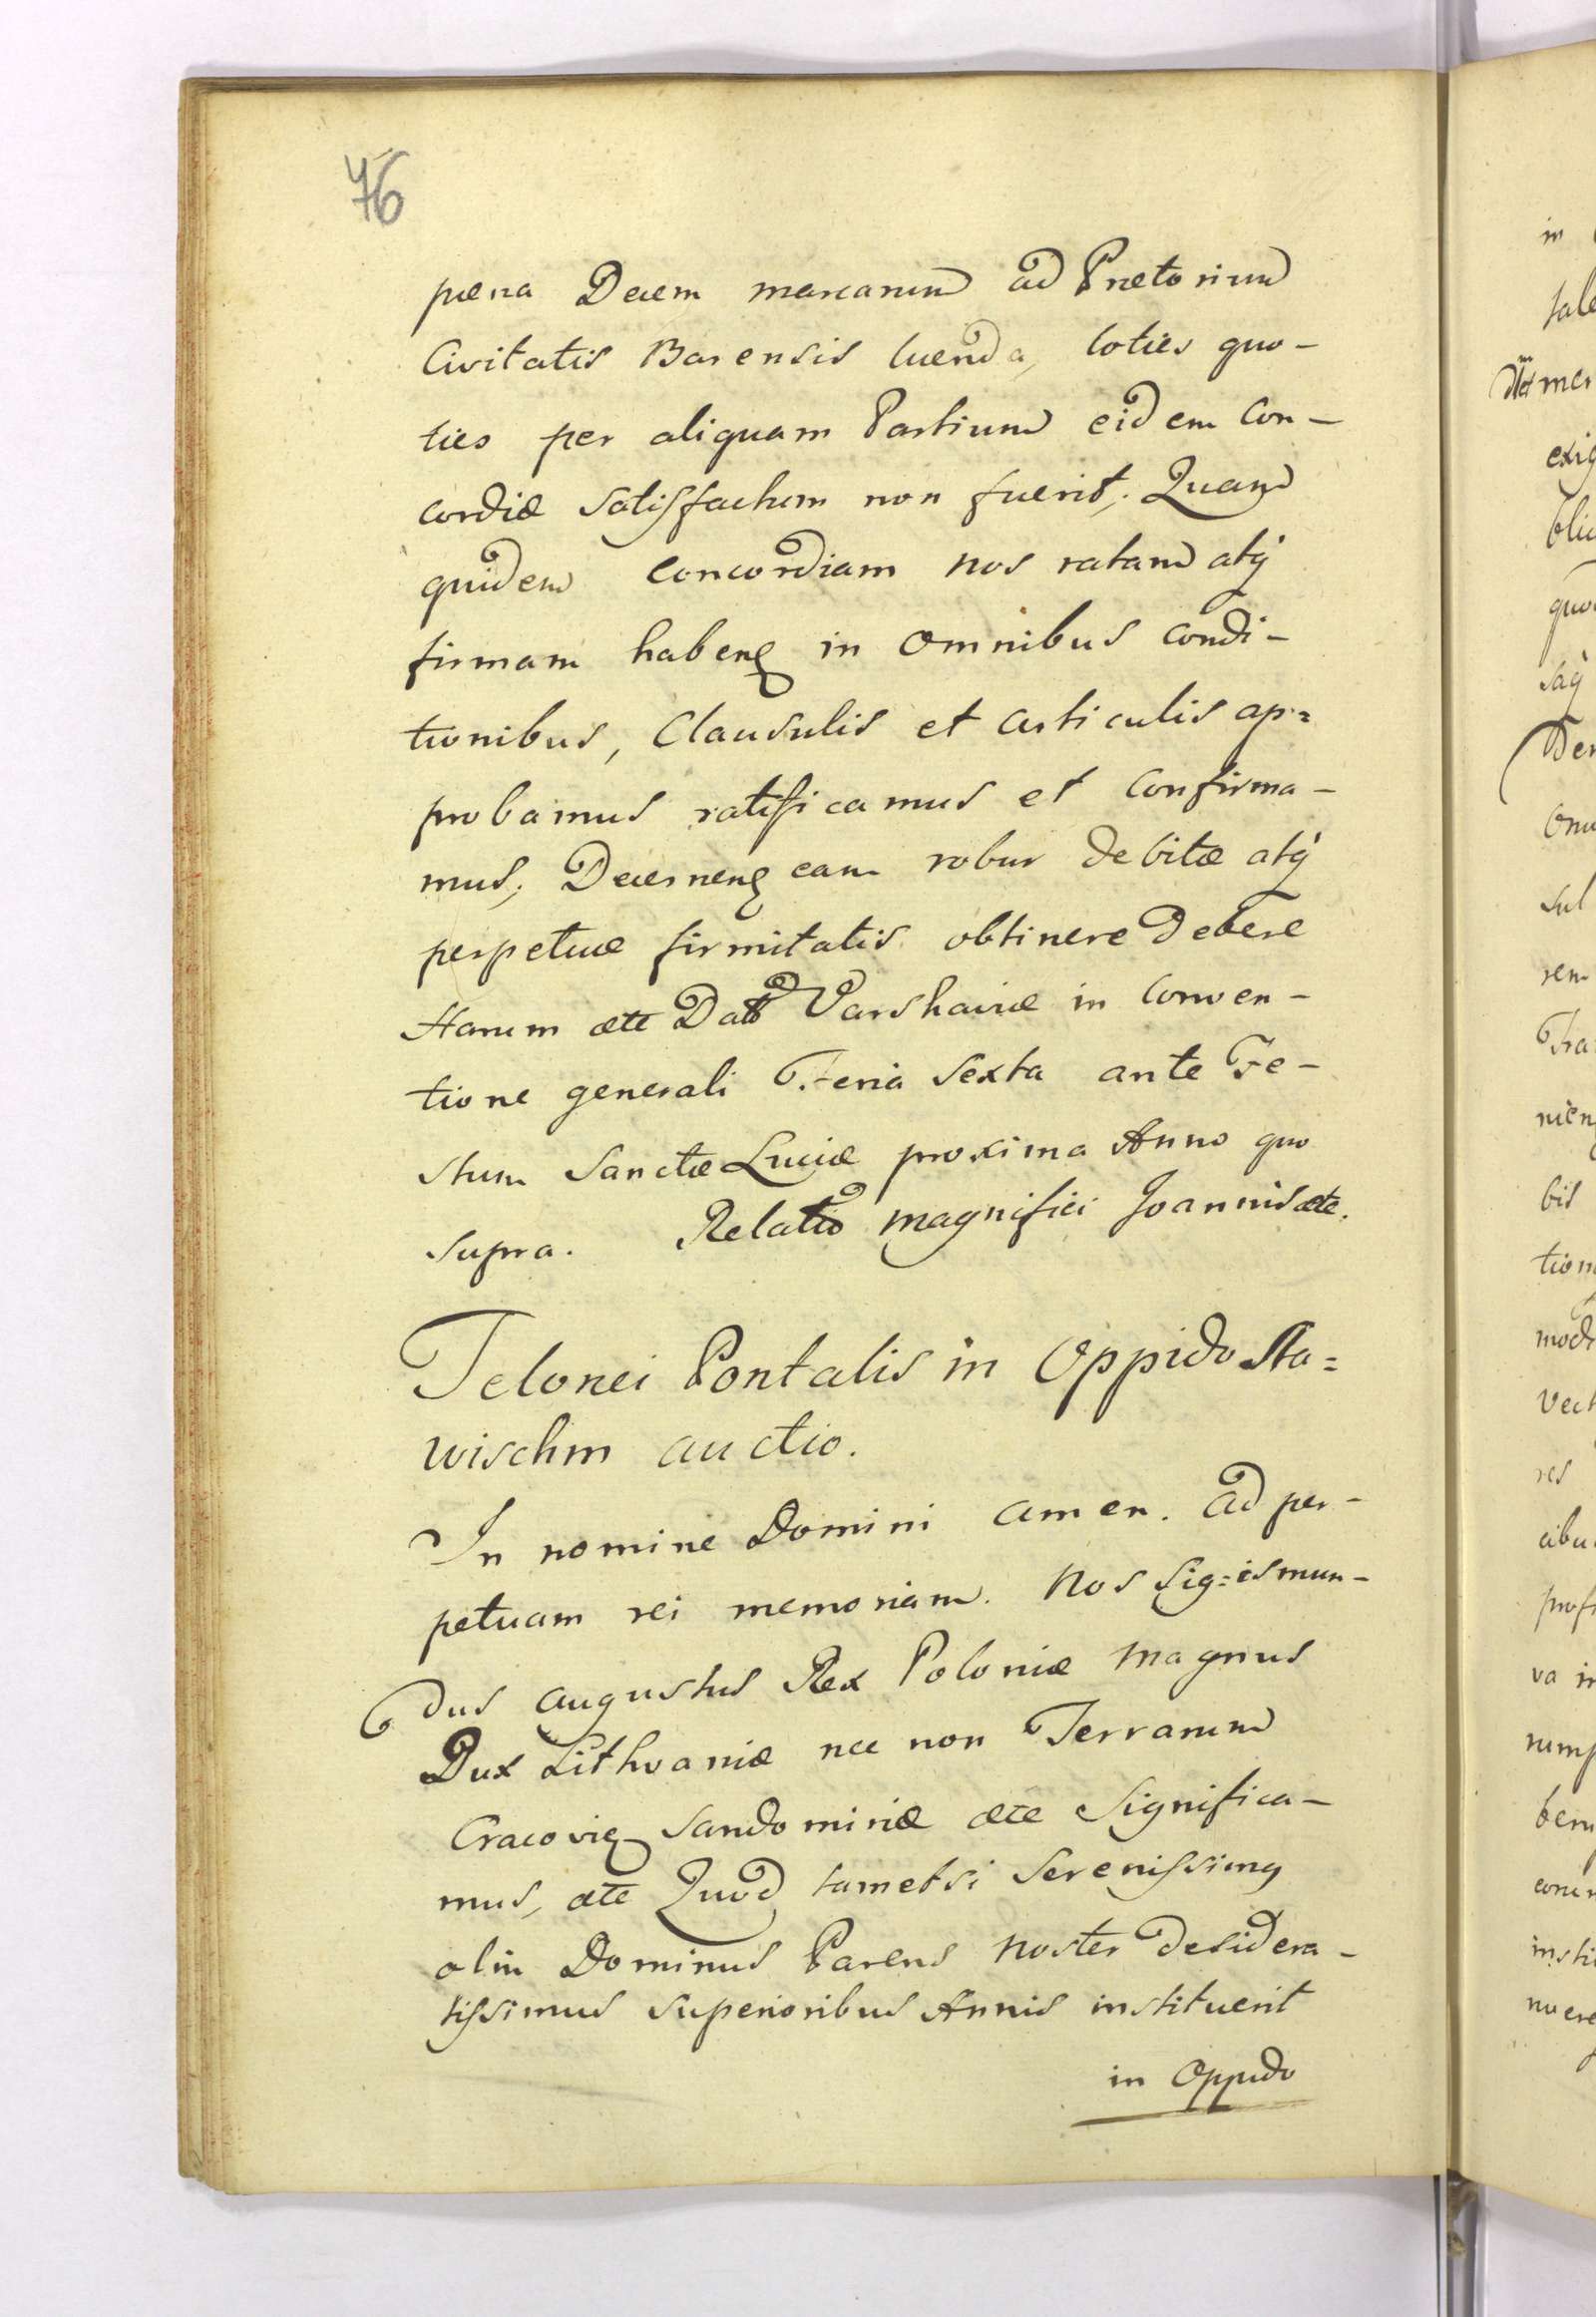 76
pœna Decem marcarum ad Prœtorium
Civitatis Barensis luenda, toties quo-
ties per aliquam Partium eidem Con-
cordiæ satisfactum non fuerit; Quam
quidem concordiam nos ratam atq́
firmam habenȩ in omnibus condi-
tionibus, Clausulis et articulis ap=
probamus ratificamus et confirma-
mus; Decernenȩ eam robur debitæ atq́
perpetuæ firmitatis obtinere debere
Harum ætc Dat Varshaviæ in Conven-
tione generali Feria Sexta ante Fe-
stum Sanctæ Luciæ proxima Anno quo
supra. Relatio magnifici Joannis ætc.
Telonei Pontalis in Oppido Sta=
wischm auctio.
In nomine Domini amen. Ad per-
petuam rei memoriam. Nos Sig=ismun-
dus Augustus Rex Poloniæ Magnus
Dux Lithvaniæ nec non Terrarum
Cracovię Sandomiriæ ætc Significa-
mus, ætc Quod tametsi Serenissimg
olim Dominus Parens Noster desidera-
tissimus superioribus Annis instituerit
in Oppido